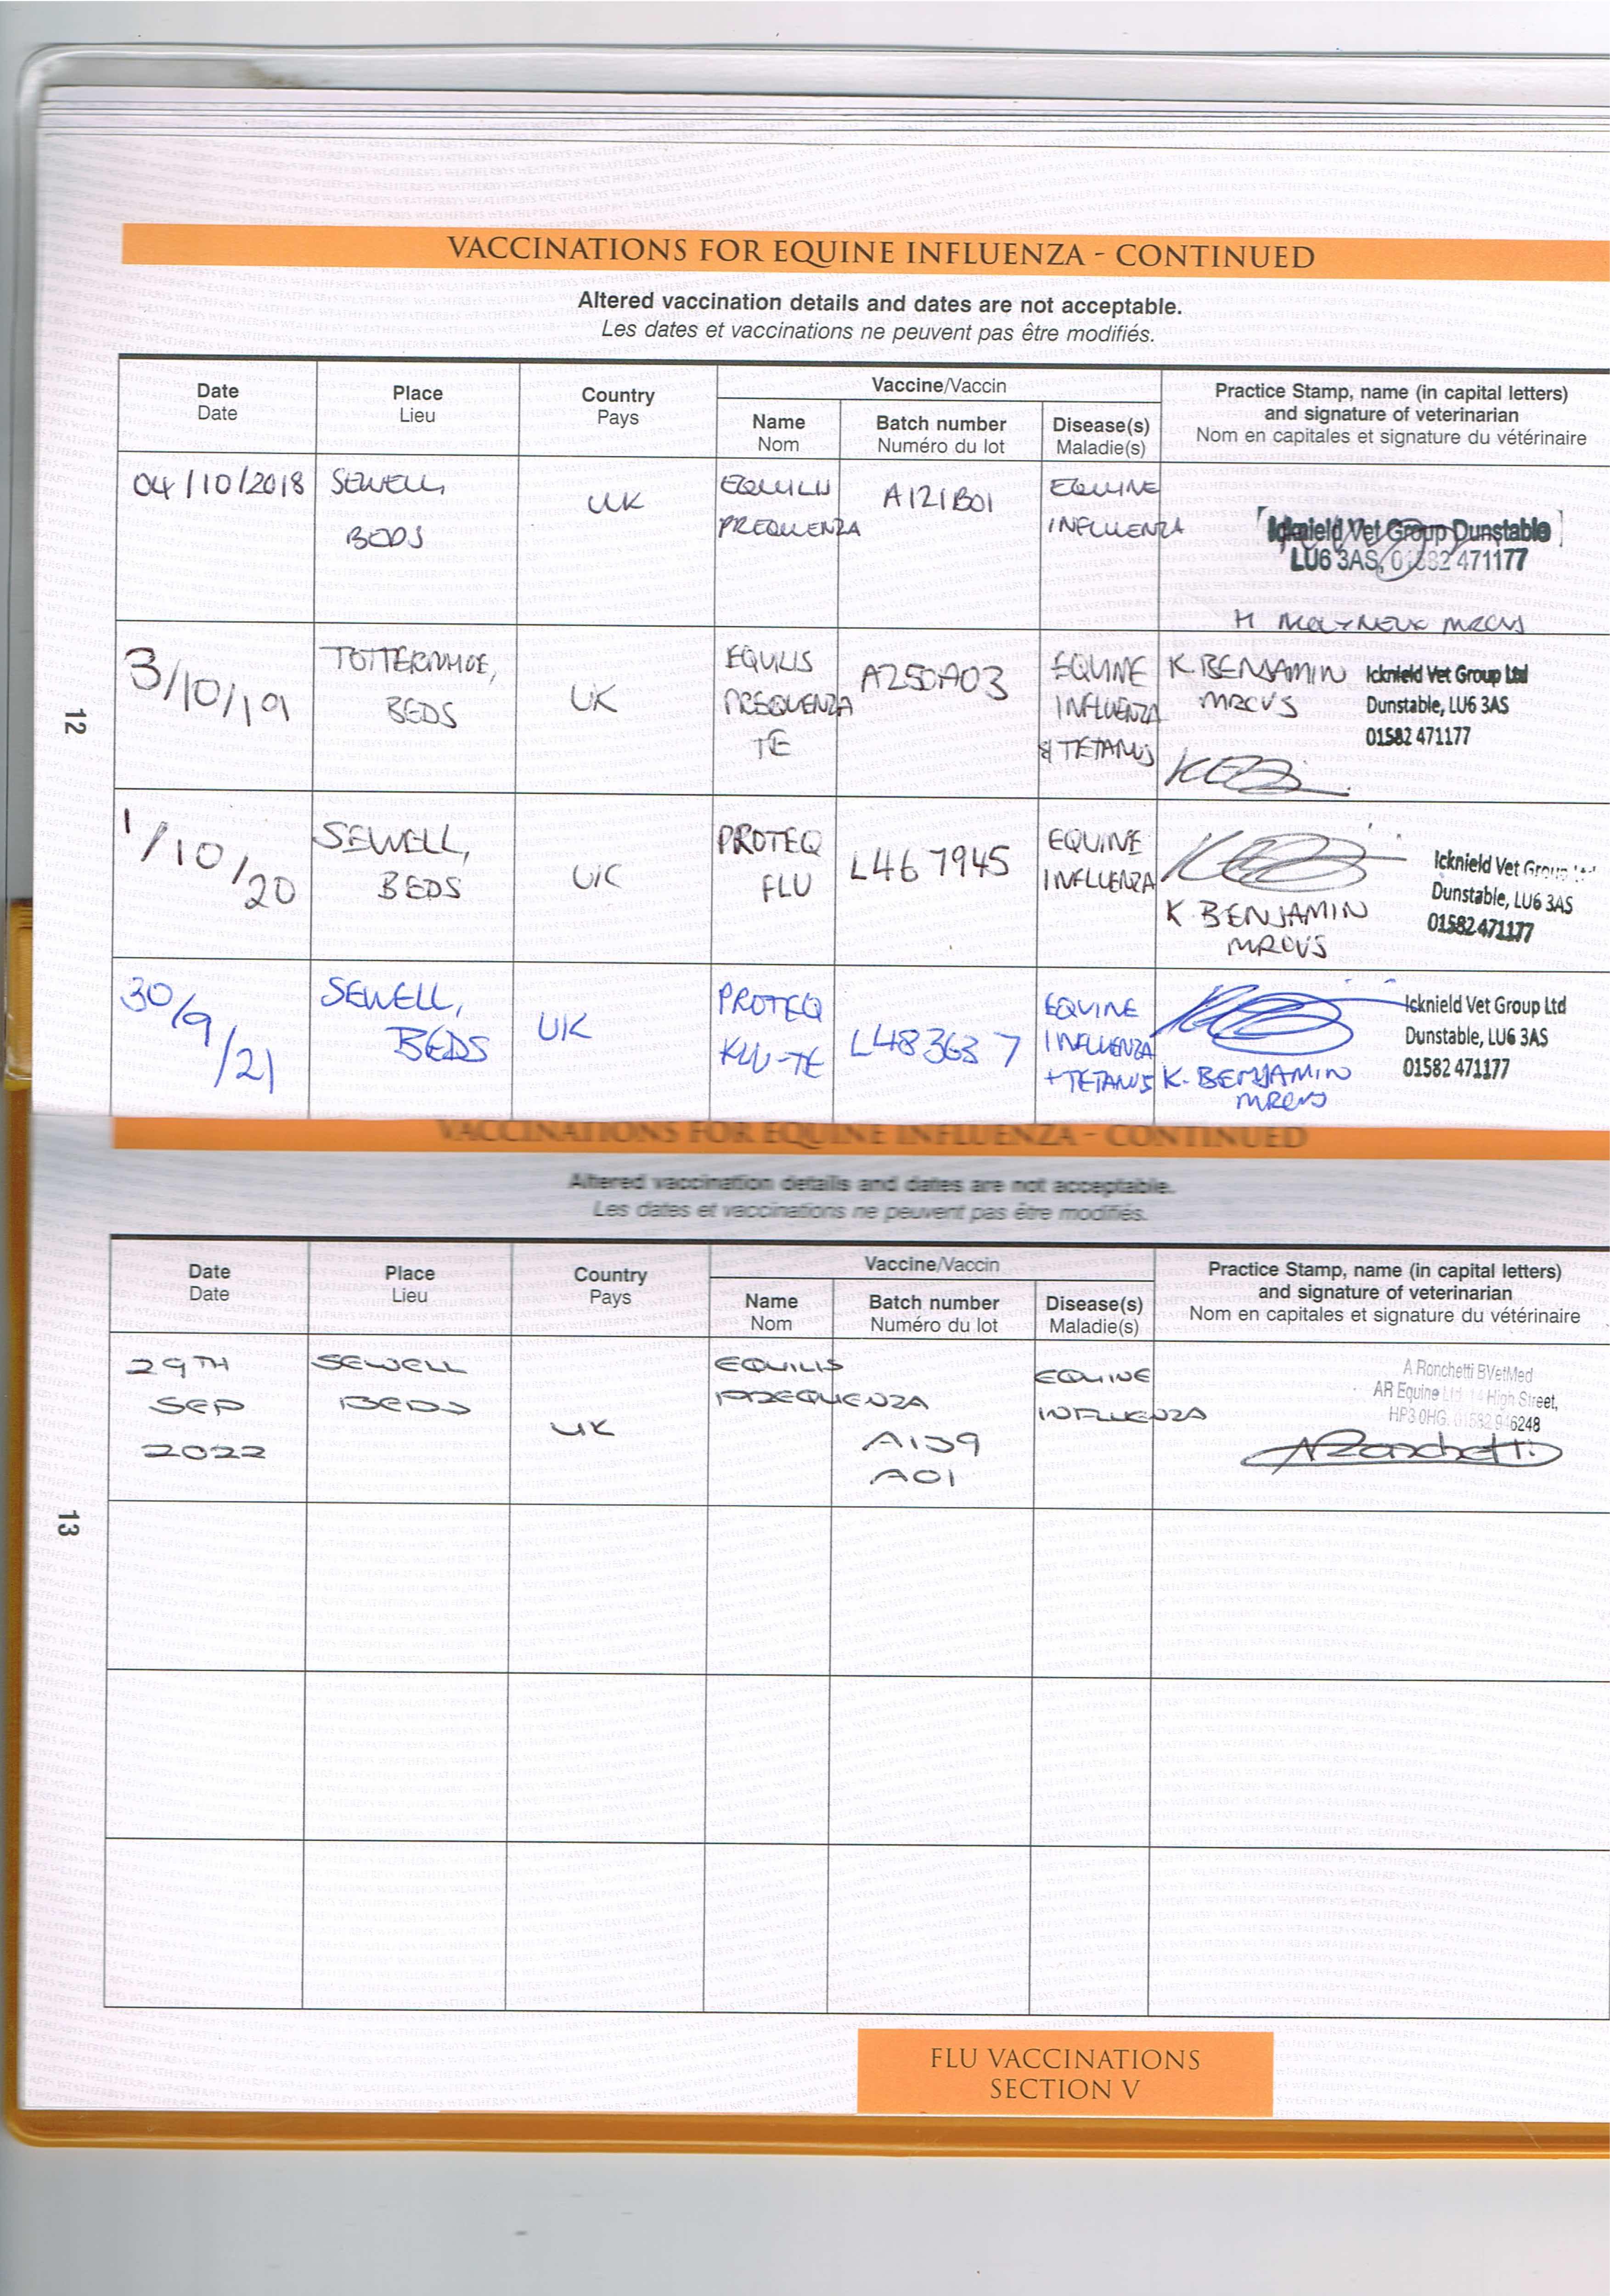 VACCINATIONS FOR EQUINE INFLUENZA - CONTINUED
Altered vaccination details and dates are not acceptable.
Les dates et vaccinations ne peuvent pas être modifiés.
Date
Date
Place
Lieu
Country
Pays
Vaccine/Vaccin
Name
Nom
Batch number
Numéro du lot
Disease(s)
Maladie(s)
Practice Stamp, name (in capital letters)
and signature of veterinarian
Nom en capitales et signature du vétérinaire
04/10/2018
SEWELL,
BEDS
UK
EQUILIS
PREQUENZA
A121B01
EQUINE
INFLUENZA
Icknield Vet Group Dunstable
LU6 3AS, 01582 471177
H MOLYNEUX MRCVS
3/10/19
TOTTERNHOE,
BEDS
UK
EQUILIS
PREQUENZA
TE
A250A03
EQUINE
INFLUENZA
& TETANUS
K. BENJAMIN
MRCVS
Icknield Vet Group Ltd
Dunstable, LU6 3AS
01582 471177
1/10/20
SEWELL,
BEDS
UK
PROTEQ
FLU
L467945
EQUINE
INFLUENZA
K. BENJAMIN
MRCVS
Icknield Vet Group Ltd
Dunstable, LU6 3AS
01582 471177
30/9/21
SEWELL,
BEDS
UK
PROTEQ
FLU-TE
L483637
EQUINE
INFLUENZA
+ TETANUS
K. BENJAMIN
MRCVS
Icknield Vet Group Ltd
Dunstable, LU6 3AS
01582 471177
12
VACCINATIONS FOR EQUINE INFLUENZA - CONTINUED
Altered vaccination details and dates are not acceptable.
Les dates et vaccinations ne peuvent pas être modifiés.
Date
Date
Place
Lieu
Country
Pays
Vaccine/Vaccin
Name
Nom
Batch number
Numéro du lot
Disease(s)
Maladie(s)
Practice Stamp, name (in capital letters)
and signature of veterinarian
Nom en capitales et signature du vétérinaire
29TH
SEP
2022
SEWELL
BEDS
UK
EQUILIS
PREQUENZA
A139
A01
EQUINE
INFLUENZA
A Ronchetti BVetMed
AR Equine Ltd 14 High Street,
HP3 0HG. 01582 946248
A Ronchetti
13
FLU VACCINATIONS
SECTION V